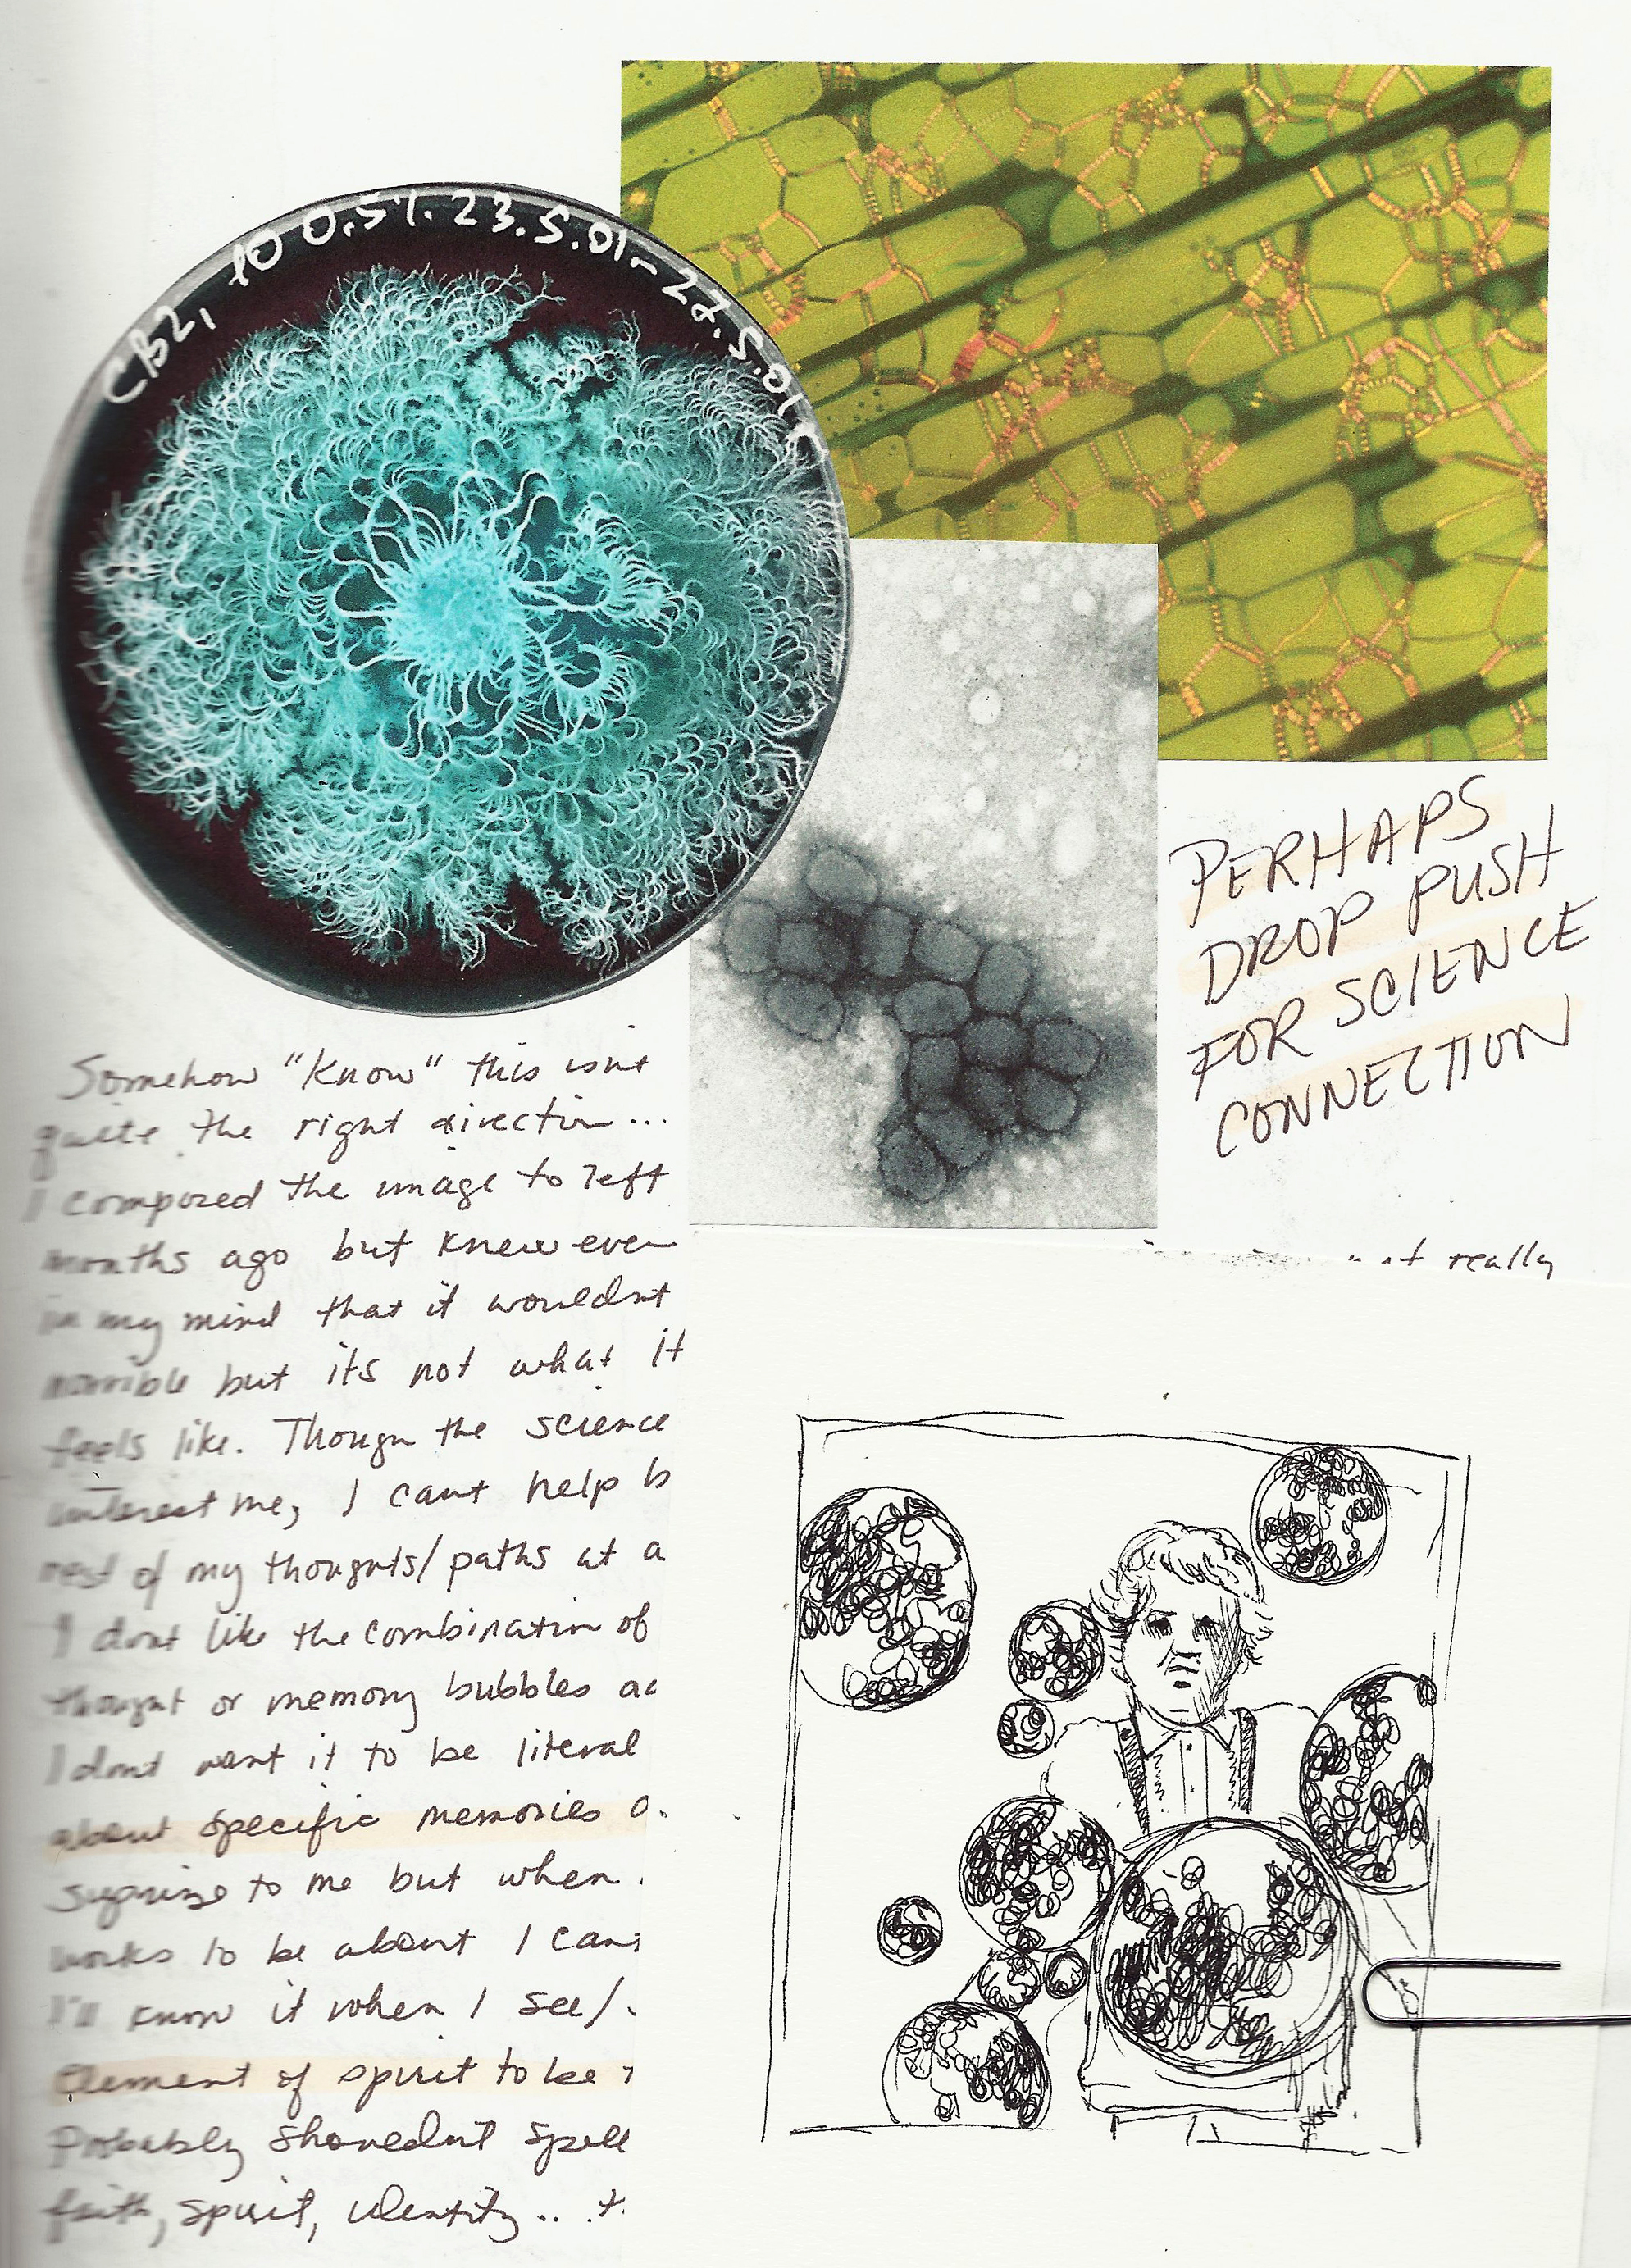 CB2, 10 0.5%. 23.5.01-27.5.01
PERHAPS
DROP PUSH
FOR SCIENCE
CONNECTION
Somehow "know" this isnt
quite the right direction...
I composed the image to left
months ago but knew even
in my mind that it wouldnt
horrible but its not what it
feels like. Though the science
interest me, I cant help b
rest of my thoughts/paths at a
I dont like the combination of
thought or memory bubbles
I dont want it to be literal
about specific memories o
suprise to me but when
works to be about I can
I'll know it when I see/
Element of spirit to be
Probably shouldnt spell
faith, spirit, identity... t
really